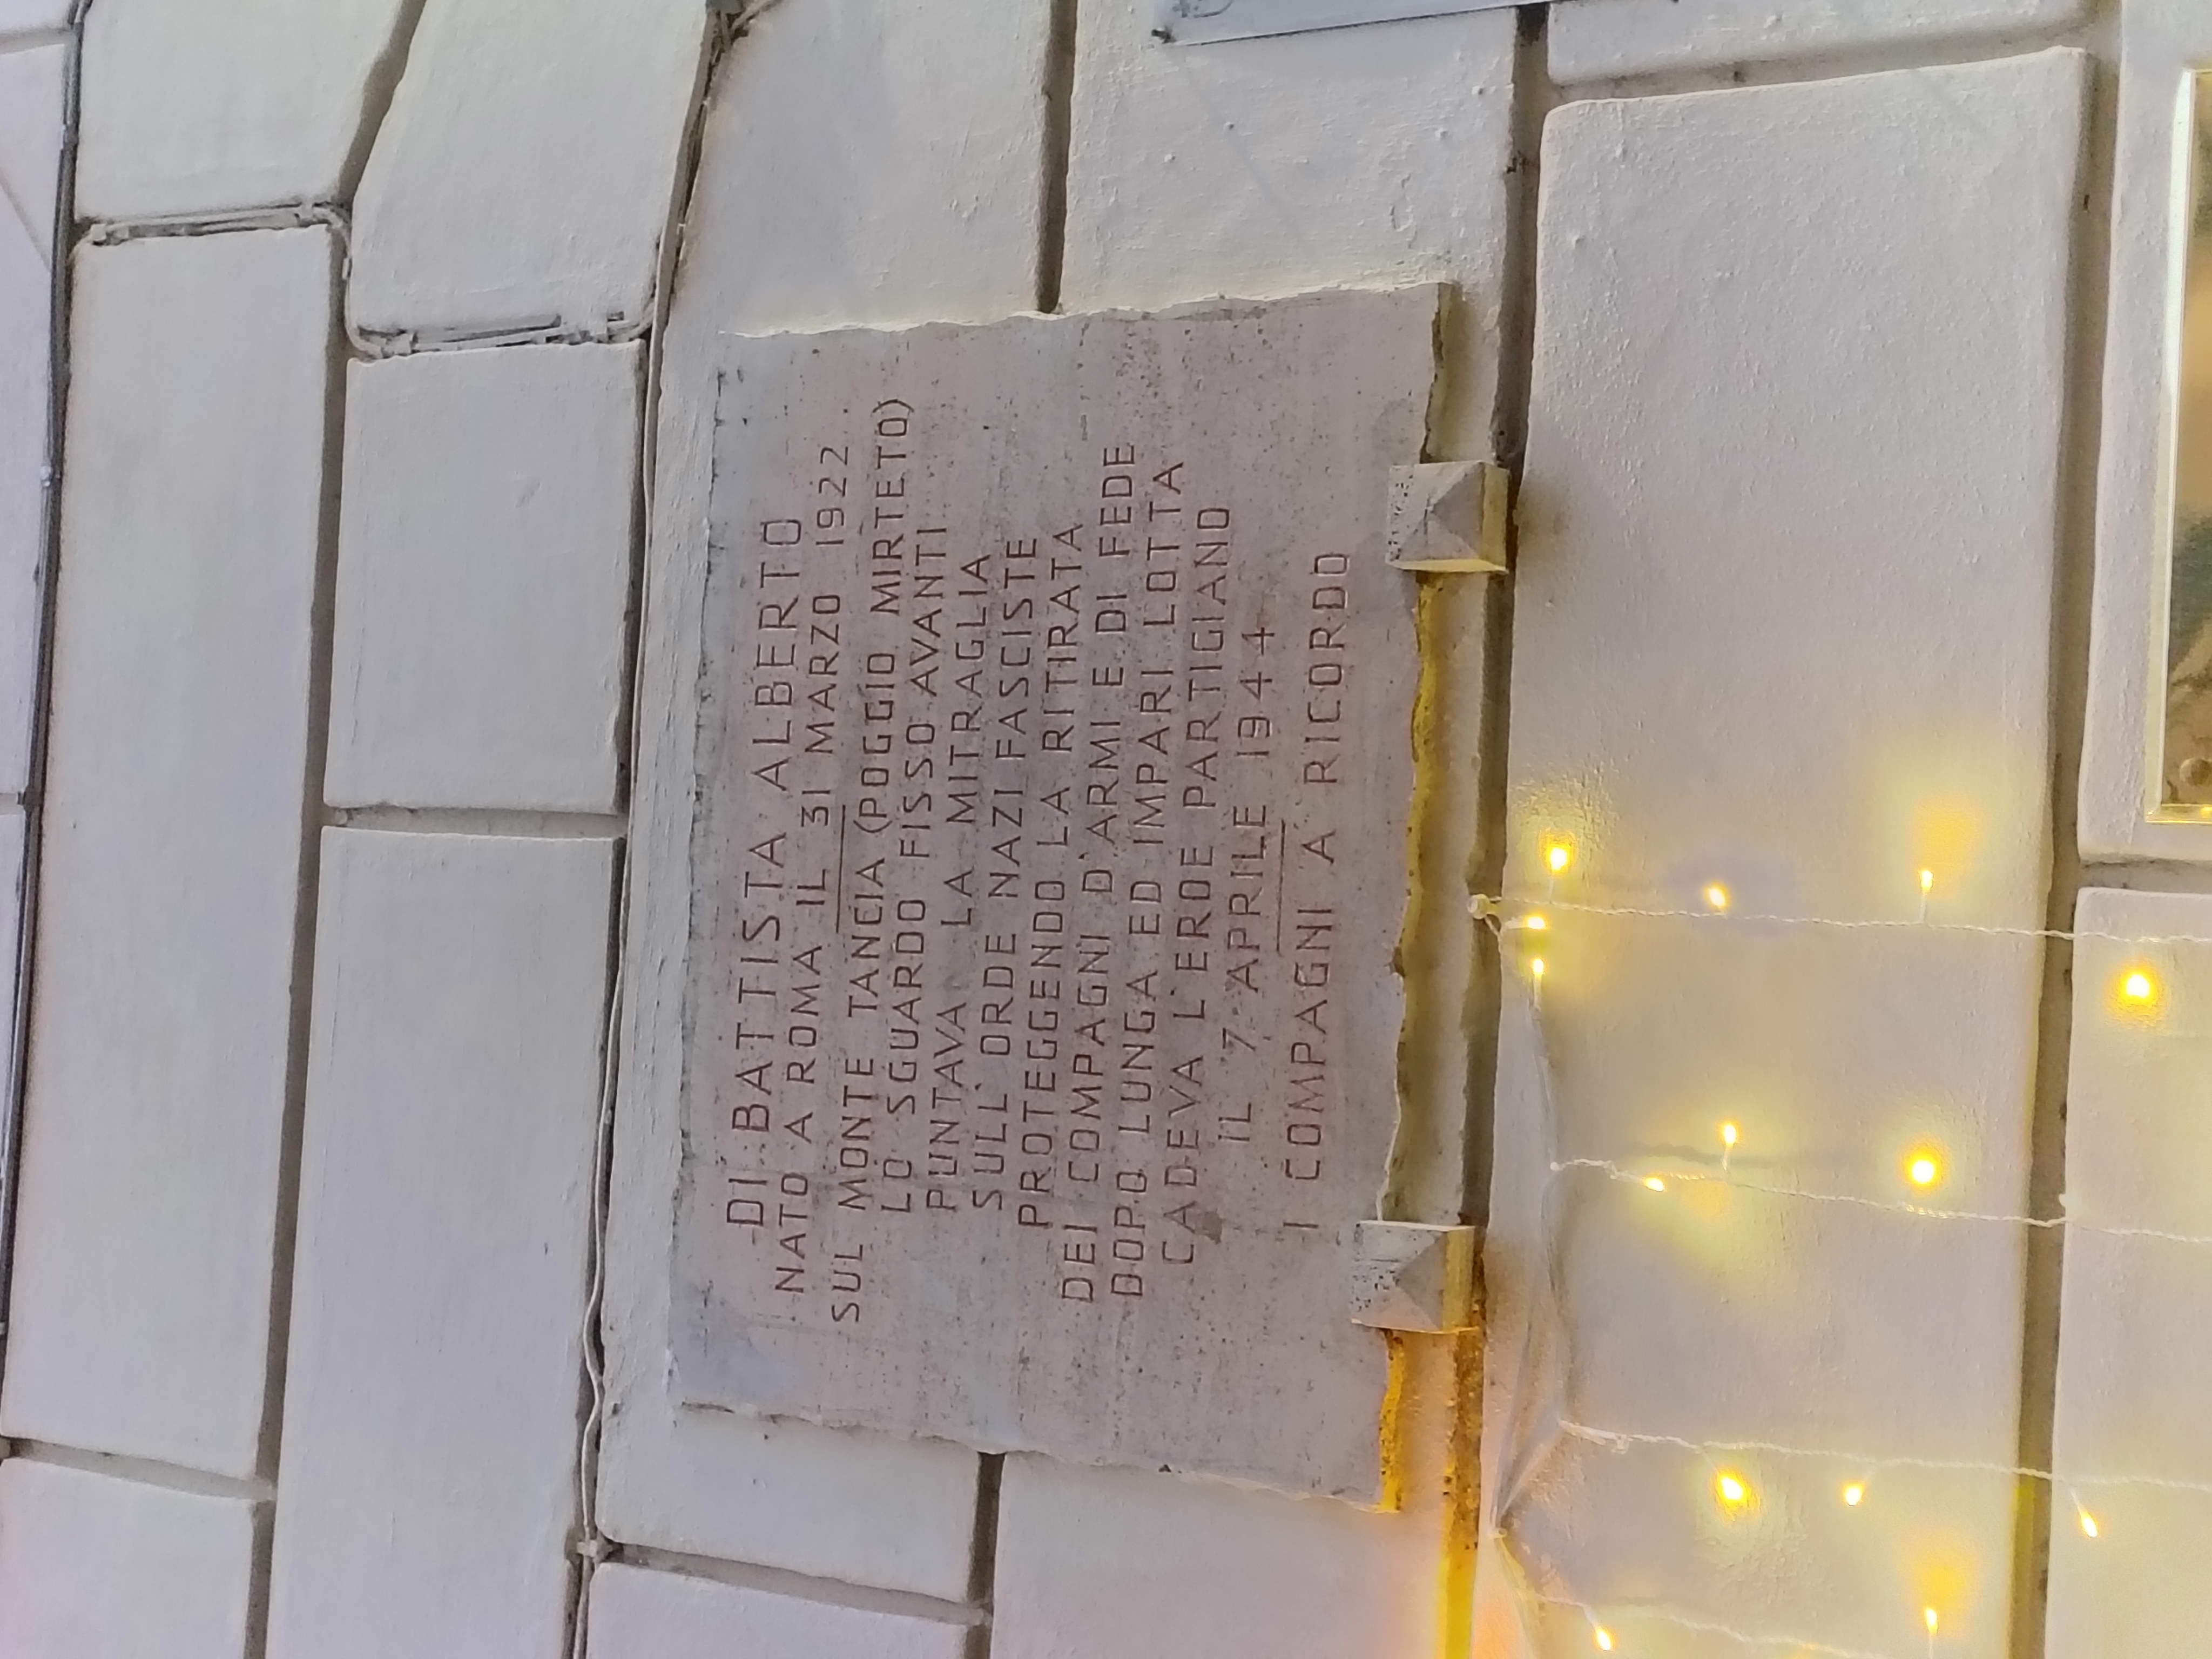 DI BATTISTA ALBERTO
NATO A ROMA IL 31 MARZO 1922
SUL MONTE TANCIA (POGGIO MIRTETO)
LO SGUARDO FISSO AVANTI
PUNTAVA LA MITRAGLIA
SULL'ORDE NAZI FASCISTE
PROTEGGENDO LA RITIRATA
DEI COMPAGNI D'ARMI E DI FEDE
DOPO LUNGA ED IMPARI LOTTA
CADEVA L'EROE PARTIGIANO
IL 7 APRILE 1944
I COMPAGNI A RICORDO